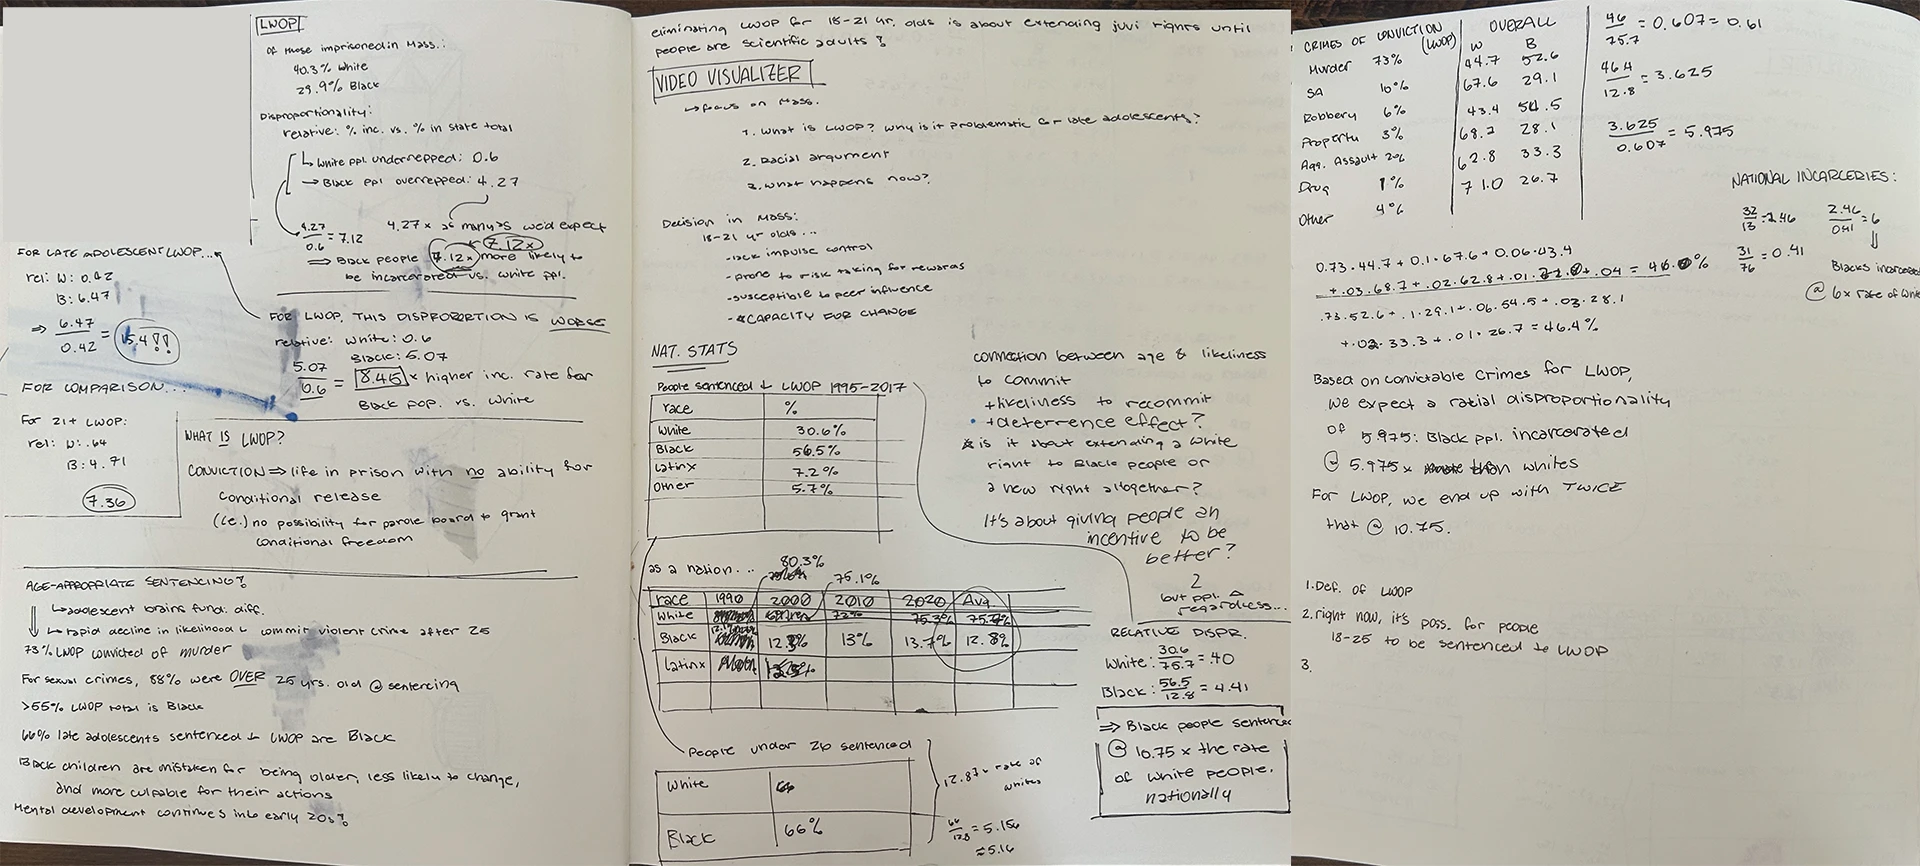 LWOP
Of those imprisoned in Mass.:
40.3% White
29.9% Black
Disproportionality:
relative: % inc. vs. % in state total
↳ White ppl underrepped: 0.6
→ Black ppl overrepped: 4.27
4.27/0.6 = 7.12
4.27x as many as we'd expect
7.12x
⇒ Black people 7.12x more likely to
be incarcerated vs. white ppl.
FOR LATE ADOLESCENT LWOP...
rel: W: 0.42
B: 6.47
⇒ 6.47/0.42 = 15.4!!
FOR LWOP, THIS DISPROPORTION IS WORSE
relative: White: 0.6
Black: 5.07
5.07/0.6 = 8.45 x higher inc. rate for
Black pop. vs. White
FOR COMPARISON...
For 21+ LWOP:
rel: W: .64
B: 4.71
7.36
WHAT IS LWOP?
CONVICTION ⇒ life in prison with no ability for
conditional release
(i.e.) no possibility for parole board to grant
conditional freedom
AGE-APPROPRIATE SENTENCING?
↳ adolescent brains fund. diff.
↳ rapid decline in likelihood to commit violent crime after 25
73% LWOP convicted of murder
For sexual crimes, 88% were OVER 25 yrs. old @ sentencing
>55% LWOP total is Black
66% late adolescents sentenced to LWOP are Black
Black children are mistaken for being older, less likely to change,
and more culpable for their actions
Mental development continues into early 20s!
eliminating LWOP for 18-21 yr. olds is about extending juvi rights until
people are scientific adults!
VIDEO VISUALIZER
↳ focus on Mass.
1. What is LWOP? Why is it problematic for late adolescents?
2. Racial argument
3. What happens now?
Decision in Mass:
18-21 yr olds...
-lack impulse control
-prone to risk taking for rewards
-susceptible to peer influence
-*CAPACITY FOR CHANGE
NAT. STATS
People sentenced to LWOP 1995-2017
race %
White 30.6%
Black 56.5%
Latinx 7.2%
Other 5.7%
connection between age & likeliness
to commit
+likeliness to recommit
+deterrence effect?
* is it about extending a white
right to Black people or
a new right altogether?
It's about giving people an
incentive to be
better?
2
but ppl. Δ
regardless...
as a nation...
80.3%
75.1%
race 1990 2000 2010 2020 Avg.
White 72% 75.3% 75.7%
Black 12.3% 13% 13.7% 12.8%
Latinx
RELATIVE DISPR.
White: 30.6/75.7 = .40
Black: 56.5/12.8 = 4.41
⇒ Black people sentenced
@ 10.75 x the rate
of white people,
nationally
People under 26 sentenced
White
Black 66%
12.87x rate of
whites
66/12.8 = 5.156
≈5.16
CRIMES OF CONVICTION (LWOP) OVERALL
W B
Murder 73% 44.7 52.6
SA 10% 67.6 29.1
Robbery 6% 43.4 54.5
Property 3% 68.7 28.1
Agg. Assault 2% 62.8 33.3
Drug 1% 71.0 26.7
Other 4%
46/75.7 = 0.607 = 0.61
46.4/12.8 = 3.625
3.625/0.607 = 5.975
NATIONAL INCARCERIES:
32/13 = 2.46
2.46/0.41 = 6
31/76 = 0.41
⇓
Blacks incarcerated
@ 6x rate of white
0.73·44.7 + 0.1·67.6 + 0.06·43.4
+ .03·68.7 + .02·62.8 + .01·71.0 + .04 = 46.0%
.73·52.6 + .1·29.1 + .06·54.5 + .03·28.1
+ .02·33.3 + .01·26.7 = 46.4%
Based on convictable crimes for LWOP,
we expect a racial disproportionality
of 5.975: Black ppl. incarcorated
@ 5.975x whites
For LWOP, we end up with TWICE
that @ 10.75.
1. Def. of LWOP
2. right now, it's poss. for people
18-25 to be sentenced to LWOP
3.